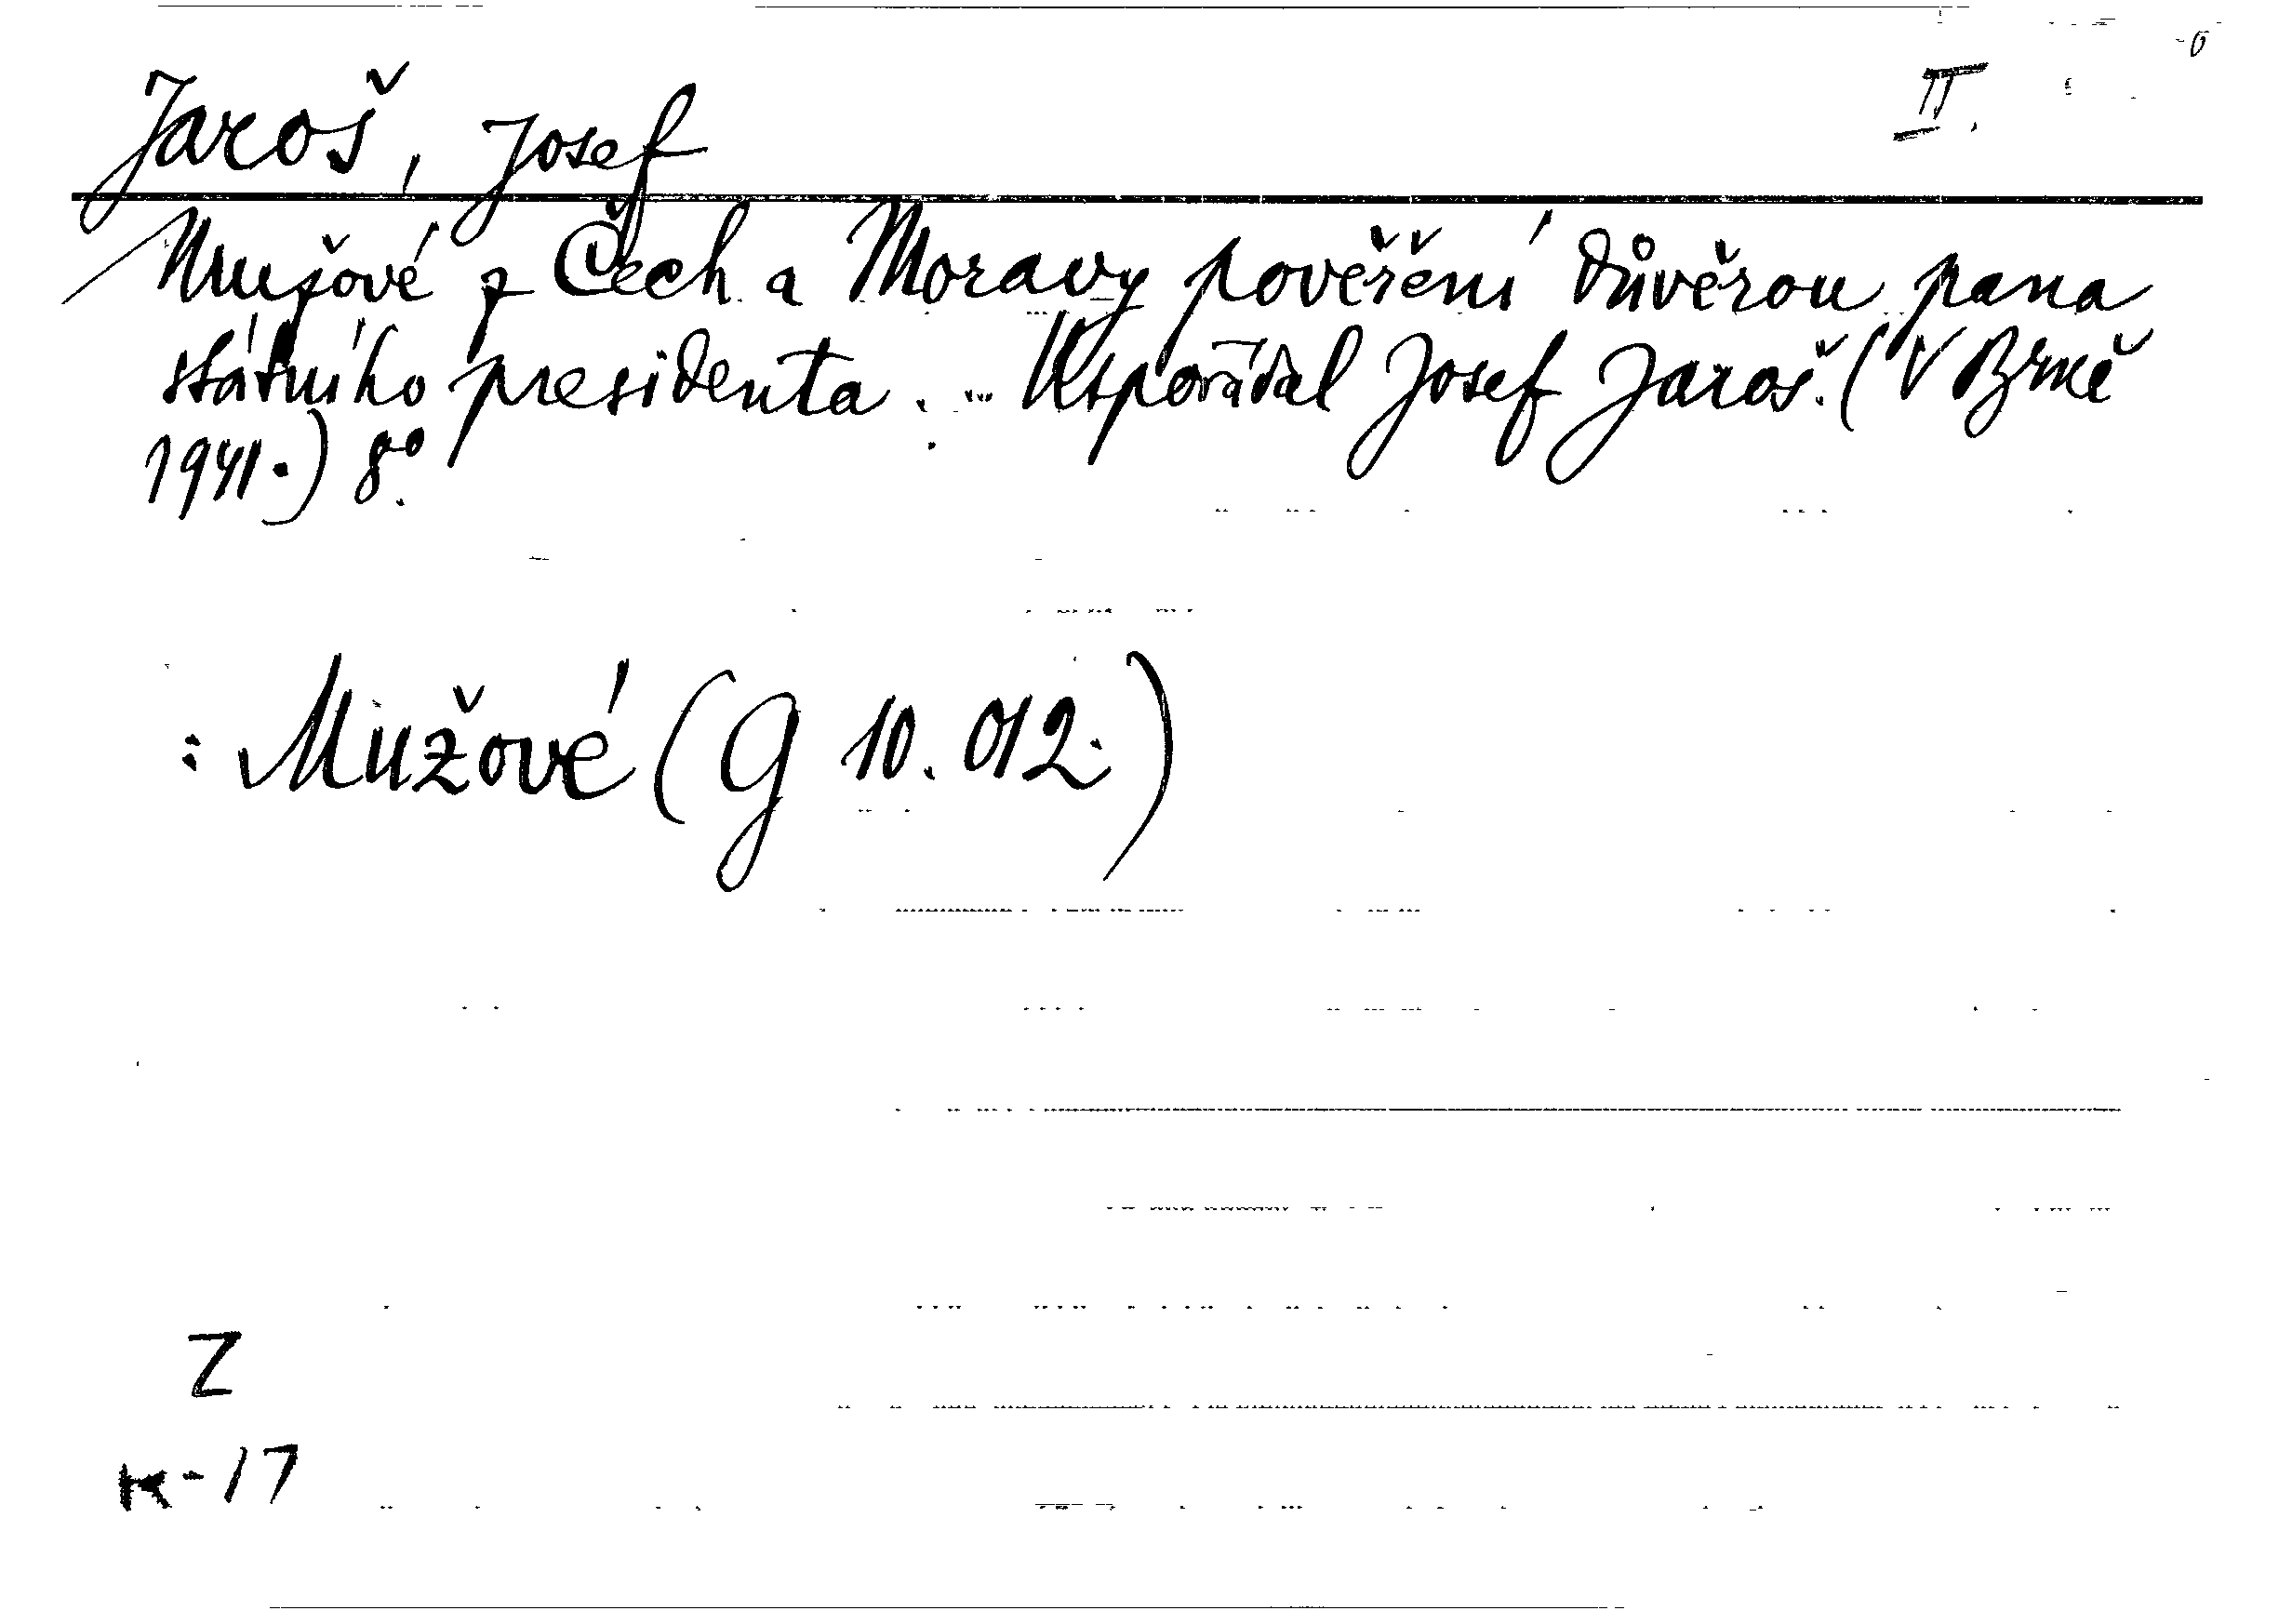 Jaroš, Josef II.
Mužové z Čech a Moravy pověření důvěrou pana
státního presidenta. Uspořádal Josef Jaroš. (V Brně
1941.) 8°.
: Mužové (G 10.012.)
Z
K-17